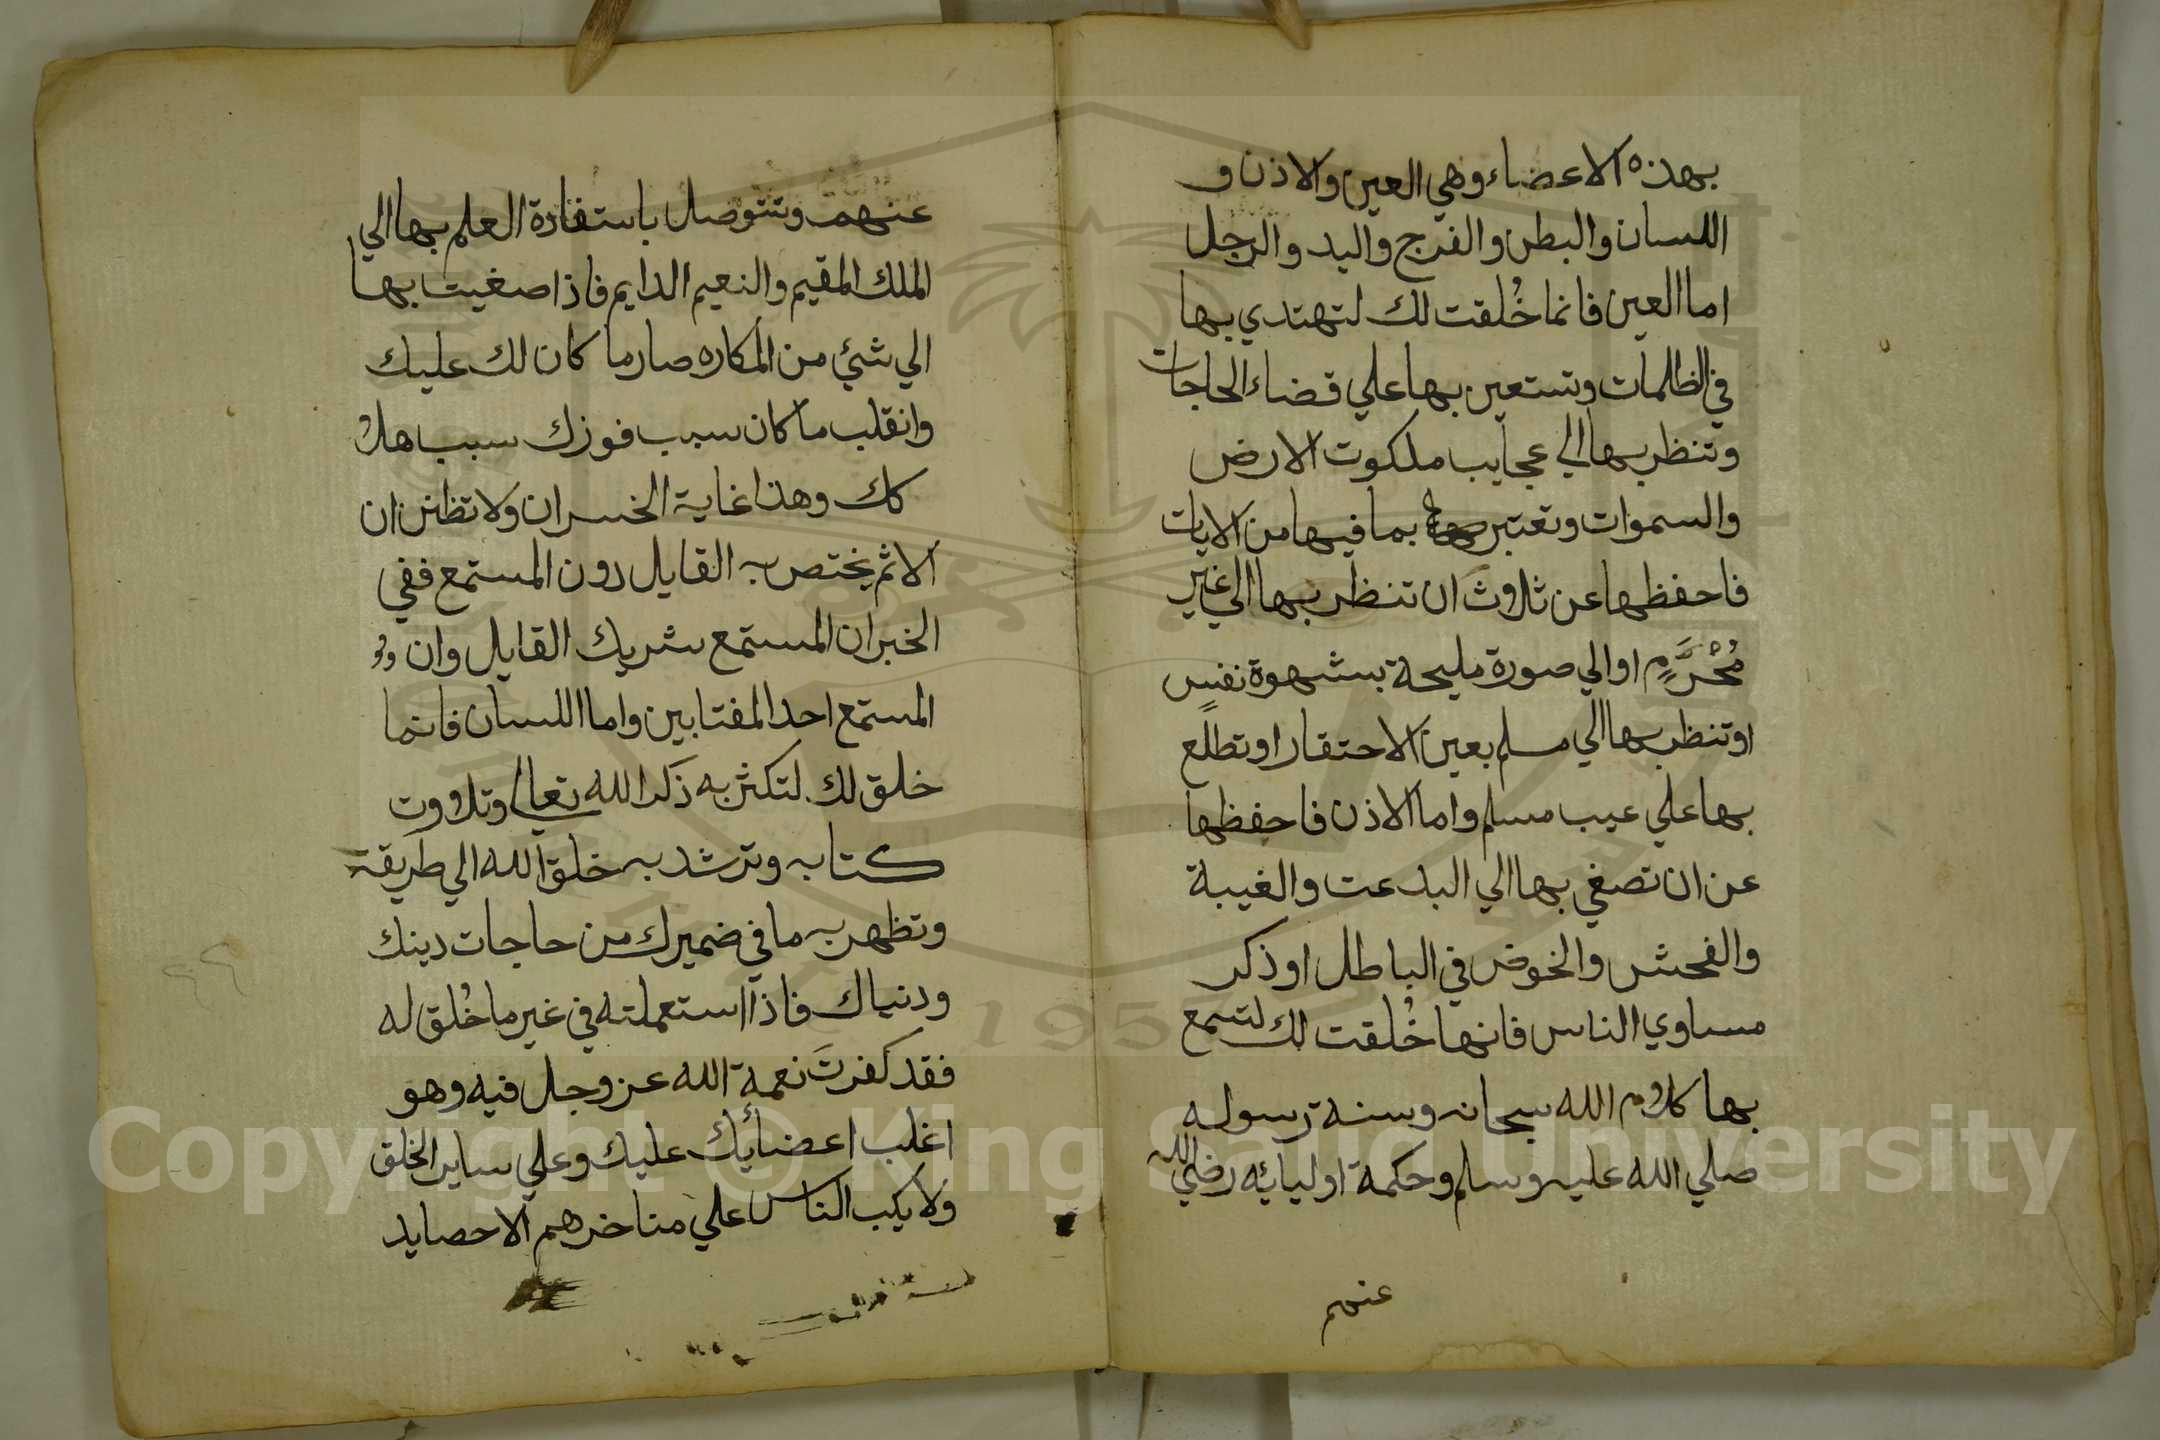 بهذه الاعضاء وهي العين والاذن و
اللسان والبطن والفرج واليد والرجل
اما العين فانما خُلقت لك لتهتدي بها
في الظلمات وتستعين بها علي قضاء الحاجات
وتنظر بها الي عجايب ملكوت الارض
والسموات وتعتبر بما فيها من الايات
فاحفظها عن ثلاوث ان تنظر بها الي غير
مُحْرَّمٍ او الي صورة مليحة بشهوة نفس
او تنظر بها الي مسلمٍ بعين الاحتقار او تطلع
بها علي عيب مسلم واما الاذن فاحفظها
عن ان تصغي بها الي البدعت والغيبة
والفحش والخوض في الباطل او ذكر
مساوي الناس فانها خُلقت لك لتسمع
بها كلام الله سبحانه وسنة رسوله
صلي الله عليه وسلم وحكمة اوليائه رضي الله
عنهم
عنهم وتتوصل باستفادة العلم بها الي
الملك المقيم والنعيم الدايم فاذا صغيت بها
الي شئ من المكاره صار ما كان لك عليك
وانقلب ما كان سبب فوزك سبب هلا
كك وهذا غاية الخسران ولا تظنن ان
الاثم يختص به القايل دون المستمع ففي
الخبر ان المستمع شريك القايل وان
المستمع احد المغتابين واما اللسان فانما
خلق لك لتكثر به ذكر الله تعالي وتلاوت
كتابه وترشد به خلق الله الي طريقة
وتظهر به ما في ضميرك من حاجات دينك
ودنياك فاذا استعملته في غير ما خُلق له
فقد كفرتَ نعمة الله عز وجل فيه وهو
اغلب اعضائك عليك وعلي ساير الخلق
ولا يكب الناس علي مناخرهم الا حصايد
Copyright © King Saud University
1957